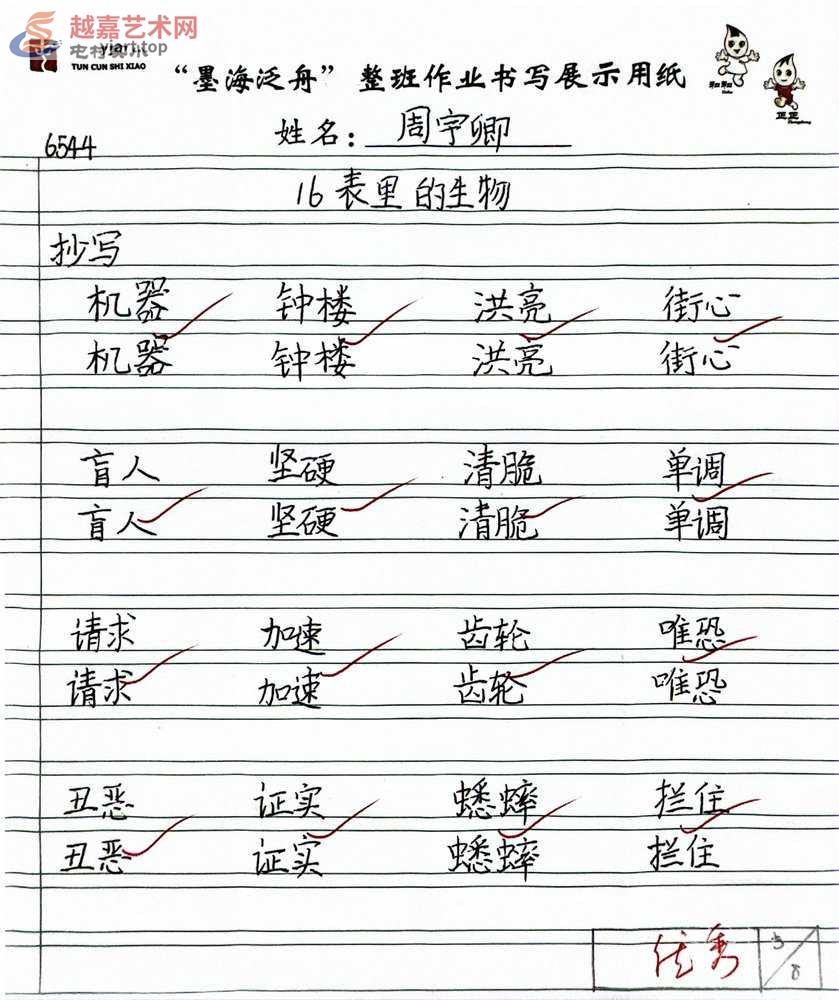 越嘉艺术网
yjart.top
TUN CUN SHI XIAO
“墨海泛舟”整班作业书写展示用纸
和和
正正
姓名：周宇卿
6544
16 表里的生物
抄写
机器 钟楼 洪亮 街心
机器 钟楼 洪亮 街心
盲人 坚硬 清脆 单调
盲人 坚硬 清脆 单调
请求 加速 齿轮 唯恐
请求 加速 齿轮 唯恐
丑恶 证实 蟋蟀 拦住
丑恶 证实 蟋蟀 拦住
优秀 3/8